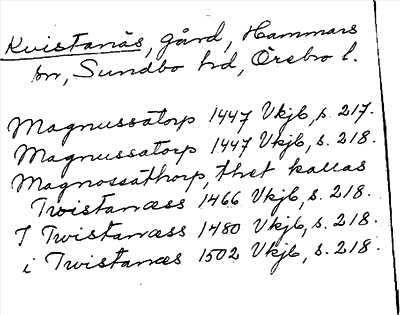 Kvistanäs, gård, Hammars
sn, Sundbo hd, Örebro l.
Magnussatorp 1447 Vkjb, s. 217.
Magnussatorp 1447 Vkjb, s. 218.
Magnossathorp, thet kallas
Twistanæss 1466 Vkjb, s. 218.
I Twistanæss 1480 Vkjb, s. 218.
i Twistanæs 1502 Vkjb, s. 218.